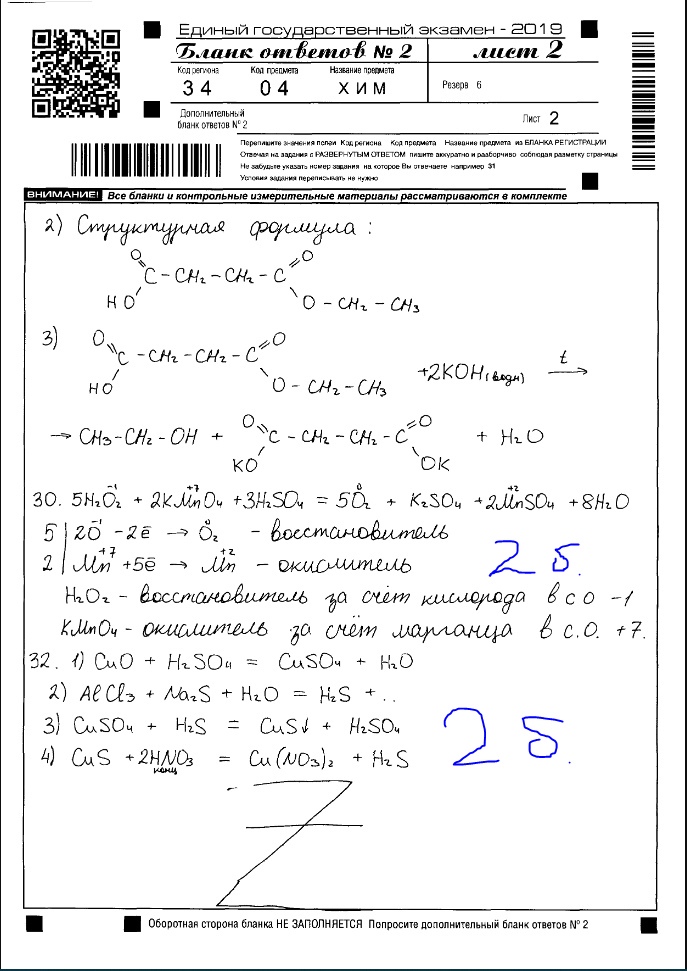 Единый государственный экзамен - 2019
Бланк ответов № 2 лист 2
Код региона Код предмета Название предмета
34 04 ХИМ
Резерв 6
Дополнительный
бланк ответов № 2
Лист 2
Перепишите значения полей Код региона Код предмета Название предмета из БЛАНКА РЕГИСТРАЦИИ
Отвечая на задания с РАЗВЕРНУТЫМ ОТВЕТОМ пишите аккуратно и разборчиво соблюдая разметку страницы
Не забудьте указать номер задания на которое Вы отвечаете например 31
Условия задания переписывать не нужно
ВНИМАНИЕ! Все бланки и контрольные измерительные материалы рассматриваются в комплекте
2) Структурная формула:
O O
C - CH₂ - CH₂ - C
HO O - CH₂ - CH₃
3) O O
C - CH₂ - CH₂ - C
HO O - CH₂ - CH₃ +2KOH(водн) t →
→ CH₃-CH₂-OH + O C - CH₂ - CH₂ - C O + H₂O
KO OK
30. 5H₂O₂⁻¹ + 2KMn⁺⁷O₄ + 3H₂SO₄ = 5O₂⁰ + K₂SO₄ + 2Mn⁺²SO₄ + 8H₂O
5 | 2O⁻¹ - 2ē → O₂⁰ - восстановитель
2 | Mn⁺⁷ + 5ē → Mn⁺² - окислитель 2 б.
H₂O₂ - восстановитель за счёт кислорода в с о -1
KMnO₄ - окислитель за счёт марганца в с.о. +7.
32. 1) CuO + H₂SO₄ = CuSO₄ + H₂O
2) AlCl₃ + Na₂S + H₂O = H₂S + ..
3) CuSO₄ + H₂S = CuS↓ + H₂SO₄ 2 б.
4) CuS + 2HNO₃ конц = Cu(NO₃)₂ + H₂S
Z
Оборотная сторона бланка НЕ ЗАПОЛНЯЕТСЯ Попросите дополнительный бланк ответов № 2